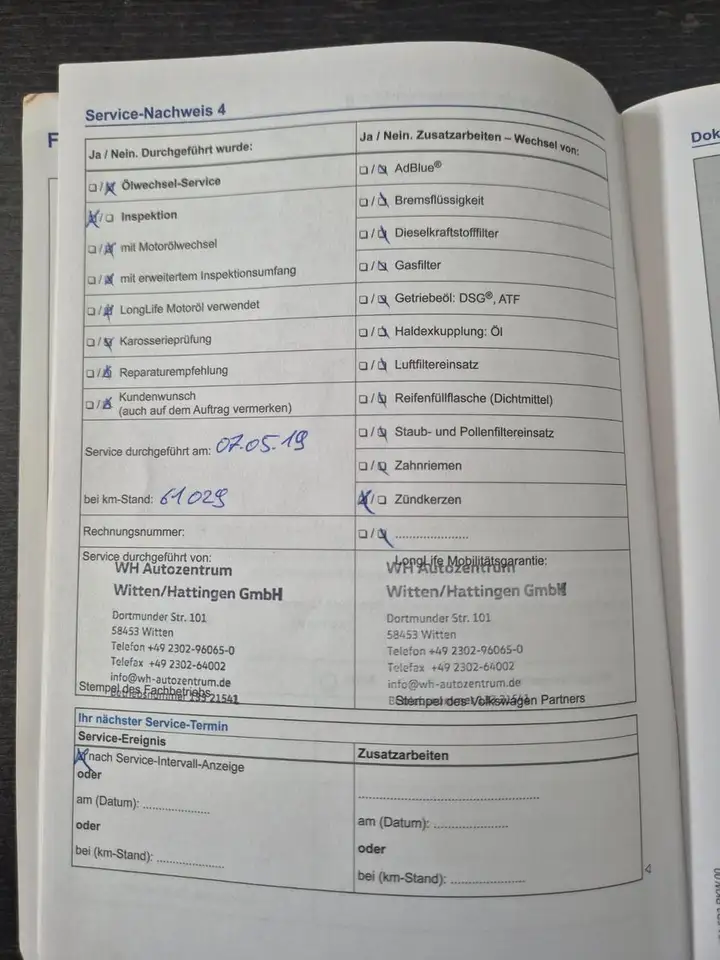 Service-Nachweis 4
Ja / Nein. Durchgeführt wurde:
☐/☒ Ölwechsel-Service
☒/☐ Inspektion
☐/☒ mit Motorölwechsel
☐/☒ mit erweitertem Inspektionsumfang
☐/☒ LongLife Motoröl verwendet
☐/☒ Karosserieprüfung
☐/☒ Reparaturempfehlung
☐/☒ Kundenwunsch
(auch auf dem Auftrag vermerken)
Service durchgeführt am: 07.05.19
bei km-Stand: 61029
Rechnungsnummer:
Service durchgeführt von:
WH Autozentrum
Witten/Hattingen GmbH
Dortmunder Str. 101
58453 Witten
Telefon +49 2302-96065-0
Telefax +49 2302-64002
info@wh-autozentrum.de
Stempel des Fachbetriebs
Betriebsnummer 133 21541
Ja / Nein. Zusatzarbeiten – Wechsel von:
☐/☒ AdBlue®
☐/☒ Bremsflüssigkeit
☐/☒ Dieselkraftstofffilter
☐/☒ Gasfilter
☐/☒ Getriebeöl: DSG®, ATF
☐/☒ Haldexkupplung: Öl
☐/☒ Luftfiltereinsatz
☐/☒ Reifenfüllflasche (Dichtmittel)
☐/☒ Staub- und Pollenfiltereinsatz
☐/☒ Zahnriemen
☒/☐ Zündkerzen
☐/☒ ....................
LongLife Mobilitätsgarantie:
WH Autozentrum
Witten/Hattingen GmbH
Dortmunder Str. 101
58453 Witten
Telefon +49 2302-96065-0
Telefax +49 2302-64002
info@wh-autozentrum.de
Stempel des Volkswagen Partners
Ihr nächster Service-Termin
Service-Ereignis
☒ nach Service-Intervall-Anzeige
oder
am (Datum): ..................
oder
bei (km-Stand): ..................
Zusatzarbeiten
..................................................
am (Datum): ....................
oder
bei (km-Stand): ....................
4
Dok
F